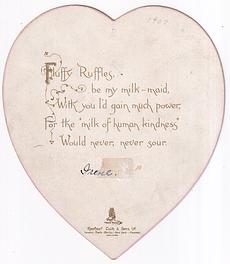 1907
Fluffy Ruffles,
be my milk-maid,
With you I'd gain much power,
For the "milk of human kindness"
Would never, never sour.
Irene.
Raphael Tuck & Sons, Ld